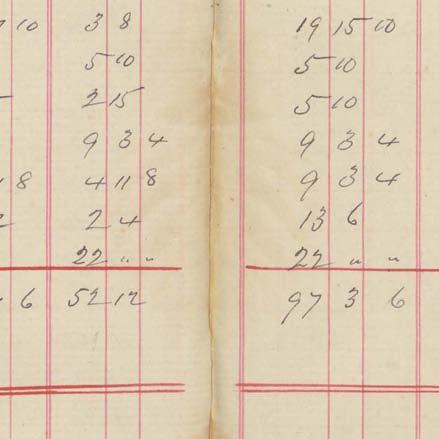 10 3 8 19 15 10
5 10 5 10
2 15 5 10
9 3 4 9 3 4
8 4 11 8 9 3 4
2 4 13 6
22 " " 22 " "
6 52 12 97 3 6